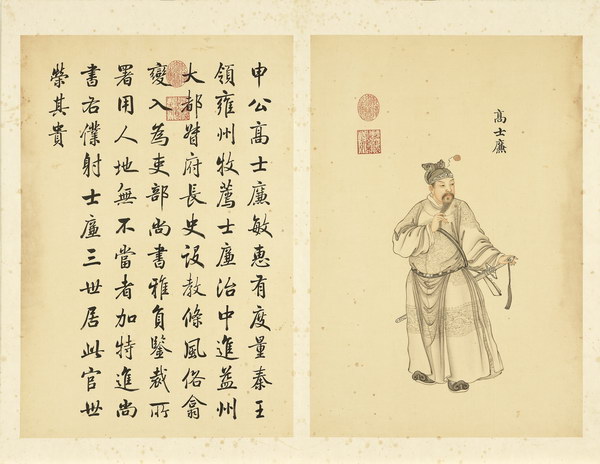 申公高士廉敏惠有度量秦王
領雍州牧薦士廉治中進益州
大都督府長史設教條風俗翕
變入為吏部尚書雅負鑒裁所
署用人地無不當者加特進尚
書右僕射士廉三世居此官世
榮其貴
高士廉